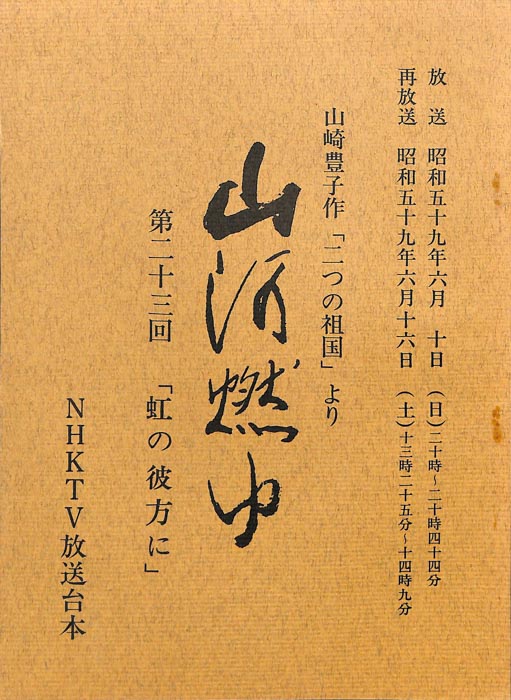 放送 昭和五十九年六月 十日 (日)二十時~二十時四十四分
再放送 昭和五十九年六月十六日 (土)十三時二十五分~十四時九分
山崎豊子作「二つの祖国」より
山河燃ゆ
第二十三回 「虹の彼方に」
NHKTV放送台本